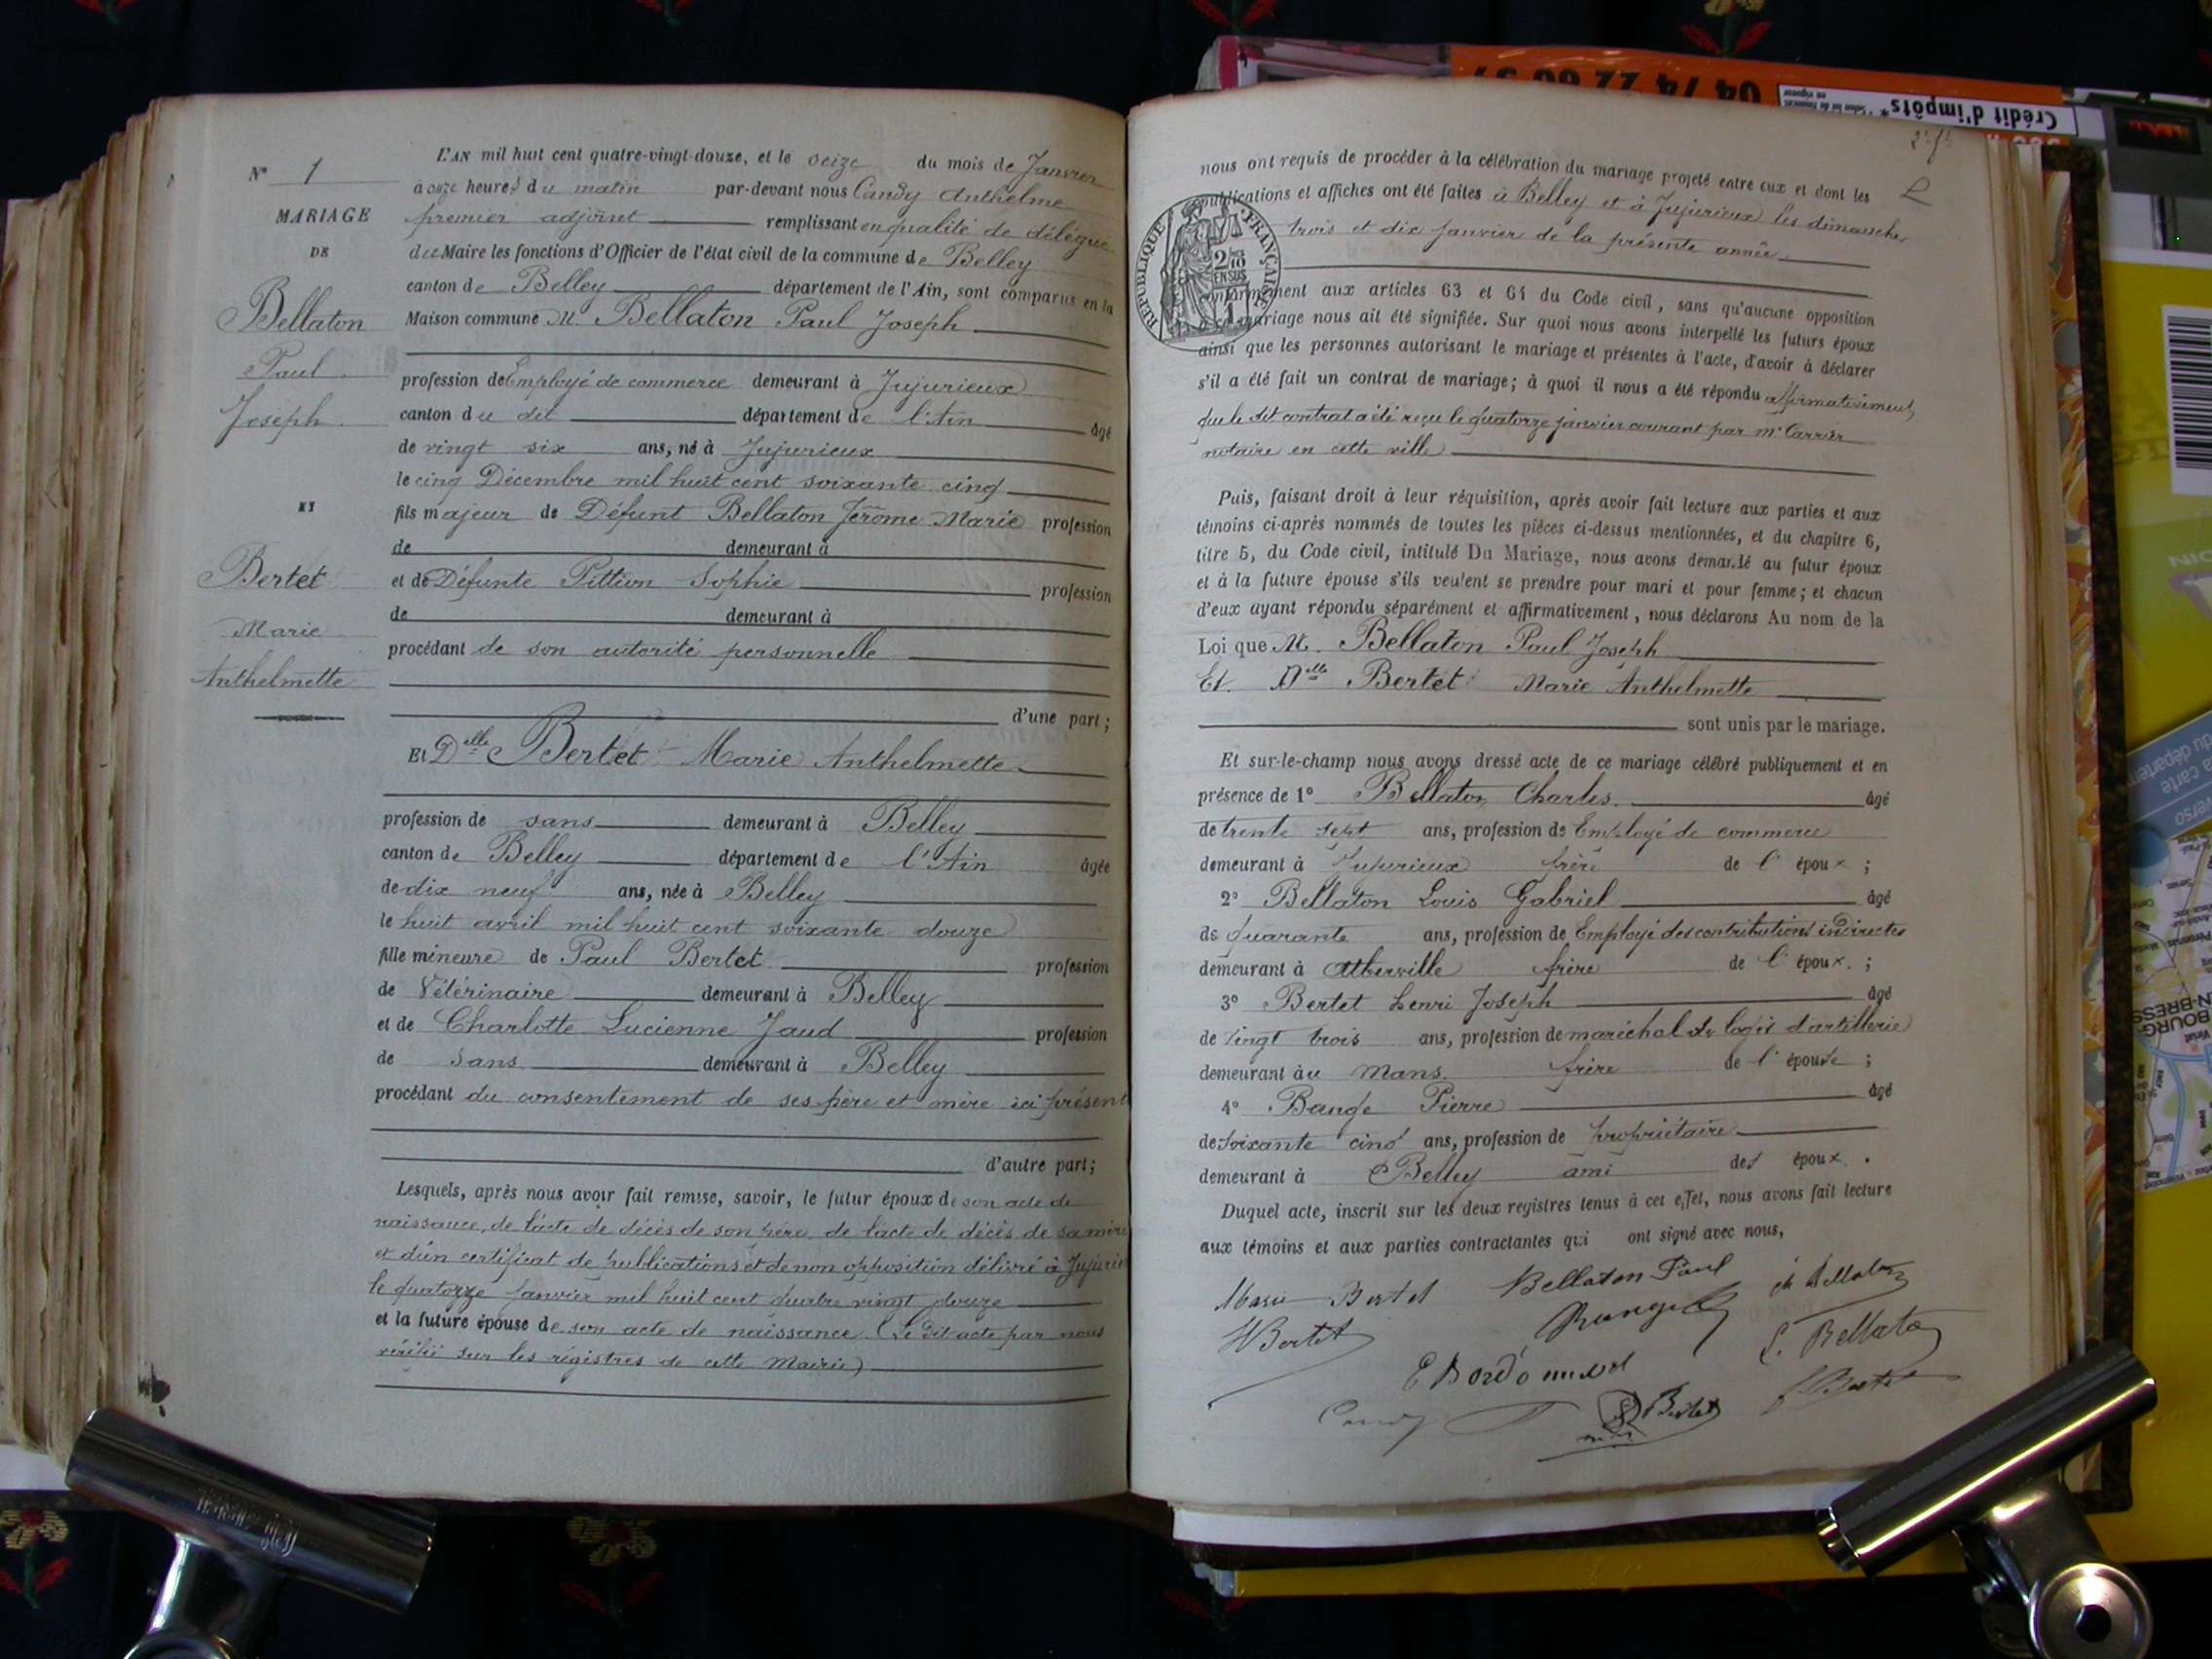 N° 1
MARIAGE
DE
Bellaton
Paul
Joseph
ET
Bertet
Marie
Anthelmette
L'AN mil huit cent quatre-vingt-douze, et le seize du mois de Janvier
à onze heures du matin par-devant nous Candy Anthelme
premier adjoint remplissant en qualité de délégué
du Maire les fonctions d'Officier de l'état civil de la commune de Belley
canton de Belley département de l'Ain, sont comparus en la
Maison commune M. Bellaton Paul Joseph
profession de Employé de commerce demeurant à Jujurieux
canton du dit département de l'Ain âgé
de vingt six ans, né à Jujurieux
le cinq Décembre mil huit cent soixante cinq
fils majeur de Défunt Bellaton Jérôme Marie profession
de demeurant à
et de Défunte Pittion Sophie profession
de demeurant à
procédant de son autorité personnelle
d'une part;
Et Delle Bertet Marie Anthelmette
profession de sans demeurant à Belley
canton de Belley département de l'Ain âgée
de dix neuf ans, née à Belley
le huit avril mil huit cent soixante douze
fille mineure de Paul Bertet profession
de Vétérinaire demeurant à Belley
et de Charlotte Lucienne Jaud profession
de sans demeurant à Belley
procédant du consentement de ses père et mère ici présent
d'autre part;
Lesquels, après nous avoir fait remise, savoir, le futur époux de son acte de
naissance, de l'acte de décès de son père, de l'acte de décès de sa mère
et d'un certificat de publications et de non opposition délivré à Jujurieu
le quatorze janvier mil huit cent quatre vingt douze
et la future épouse de son acte de naissance. (Le dit acte par nous
vérifié sur les régistres de cette Mairie)
nous ont requis de procéder à la célébration du mariage projeté entre eux et dont les
publications et affiches ont été faites à Belley et à Jujurieux les dimanches
trois et dix janvier de la présente année
RÉPUBLIQUE FRANÇAISE
2/10 EN SUS
conformément aux articles 63 et 64 du Code civil, sans qu'aucune opposition
à ce mariage nous ait été signifiée. Sur quoi nous avons interpellé les futurs époux
ainsi que les personnes autorisant le mariage et présentes à l'acte, d'avoir à déclarer
s'il a été fait un contrat de mariage; à quoi il nous a été répondu affirmativement,
que le dit contrat a été reçu le quatorze janvier courant par me Carrier
notaire en cette ville
Puis, faisant droit à leur réquisition, après avoir fait lecture aux parties et aux
témoins ci-après nommés de toutes les pièces ci-dessus mentionnées, et du chapitre 6,
titre 5, du Code civil, intitulé Du Mariage, nous avons demandé au futur époux
et à la future épouse s'ils veulent se prendre pour mari et pour femme; et chacun
d'eux ayant répondu séparément et affirmativement, nous déclarons Au nom de la
Loi que M. Bellaton Paul Joseph
Et. Delle Bertet Marie Anthelmette
sont unis par le mariage.
Et sur-le-champ nous avons dressé acte de ce mariage célébré publiquement et en
présence de 1° Bellaton Charles. âgé
de trente sept ans, profession de Employé de commerce
demeurant à Jujurieux frère de l'époux;
2° Bellaton Louis Gabriel âgé
de quarante ans, profession de Employé des contributions indirectes
demeurant à Albertville frère de l'époux.;
3° Bertet Henri Joseph âgé
de Vingt trois ans, profession de maréchal de logis d'artillerie
demeurant au Mans. frère de l'épouse;
4° Bange Pierre âgé
de soixante cinq ans, profession de propriétaire
demeurant à Belley ami des époux.
Duquel acte, inscrit sur les deux registres tenus à cet effet, nous avons fait lecture
aux témoins et aux parties contractantes qui ont signé avec nous,
Marie Bertet Bellaton Paul ch Bellaton
H Bertet
L. Bellaton
Candy
Bertet
04 74 22 60 57
Crédit d'impôts*